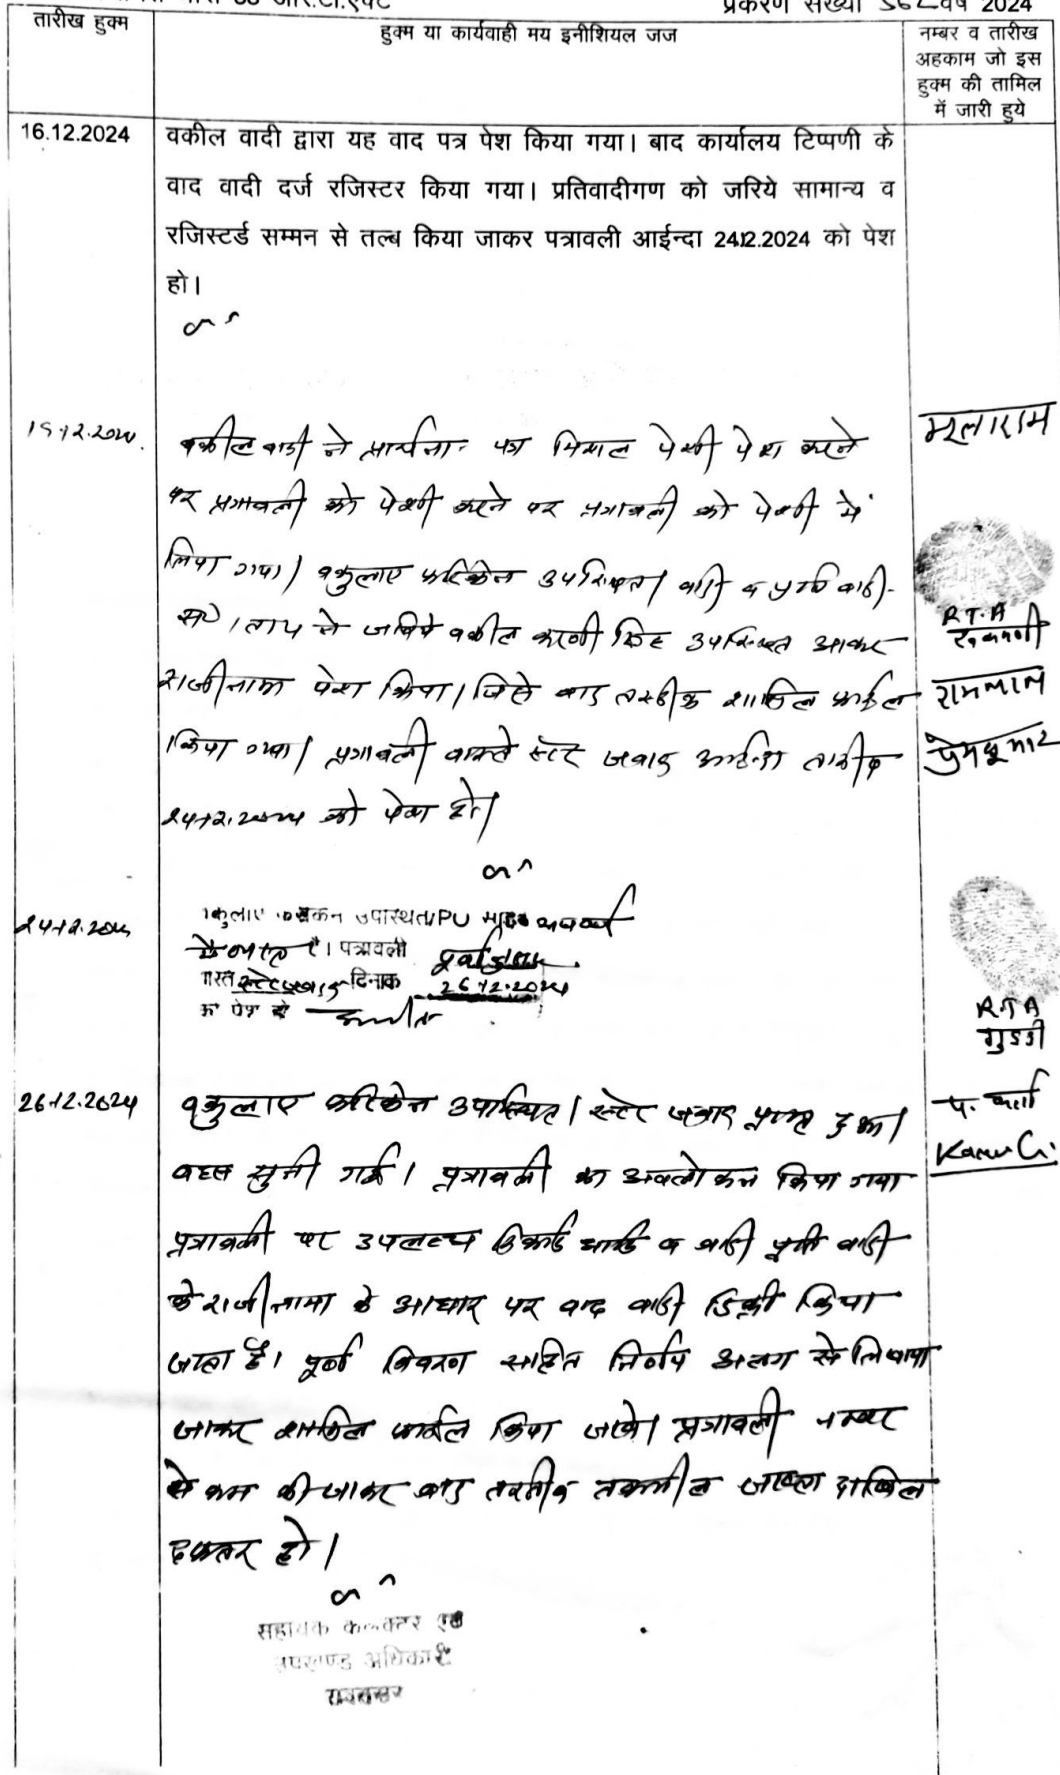 आर.टी.एक्ट
प्रकरण संख्या 562 वर्ष 2024
तारीख हुक्म
हुक्म या कार्यवाही मय इनीशियल जज
नम्बर व तारीख
अहकाम जो इस
हुक्म की तामिल
में जारी हुये
16.12.2024
वकील वादी द्वारा यह वाद पत्र पेश किया गया। बाद कार्यालय टिप्पणी के
वाद वादी दर्ज रजिस्टर किया गया। प्रतिवादीगण को जरिये सामान्य व
रजिस्टर्ड सम्मन से तल्ब किया जाकर पत्रावली आईन्दा 24.12.2024 को पेश
हो।
वकील वादी ने प्रार्थना-पत्र मिशल पेशी पेश करने
पर पत्रावली को पेशी करने पर पत्रावली को पेशी में
लिया गया। वकुलाए फरिकेन उपस्थित। वादी व प्रति वादी
ने जरिये वकील उपस्थित आकर
राजीनामा पेश किया। जिसे बाद तस्दीक शामिल फाईल
किया गया। पत्रावली वास्ते स्टेट जवाब आईन्दा तारीख
24.12.2024 को पेश हो।
मूलाराम
R.T.A
रूकमणी
रामलाल
प्रेमकुमार
24.12.2024
वकुलाए फरिकेन उपस्थित। PU
है। पत्रावली
वास्ते स्टेट जवाब दिनांक 26.12.2024
को पेश हो
R.T.A
गुड्डी
26.12.2024
वकुलाए फरिकेन उपस्थित। स्टेट जवाब प्राप्त हुआ।
बहस सुनी गई। पत्रावली का अवलोकन किया गया
पत्रावली पर उपलब्ध रिकार्ड व वादी प्रति वादी
के राजीनामा के आधार पर वाद वादी डिक्री किया
जाता है। पूर्ण विवरण सहित निर्णय अलग से लिखाया
जाकर शामिल फाईल किया जावे। पत्रावली नम्बर
से कम की जाकर बाद तरतीब तकमील जाब्ता दाखिल
दफ्तर हो।
सहायक कलक्टर एवं
उपखण्ड अधिकारी
रावतसर